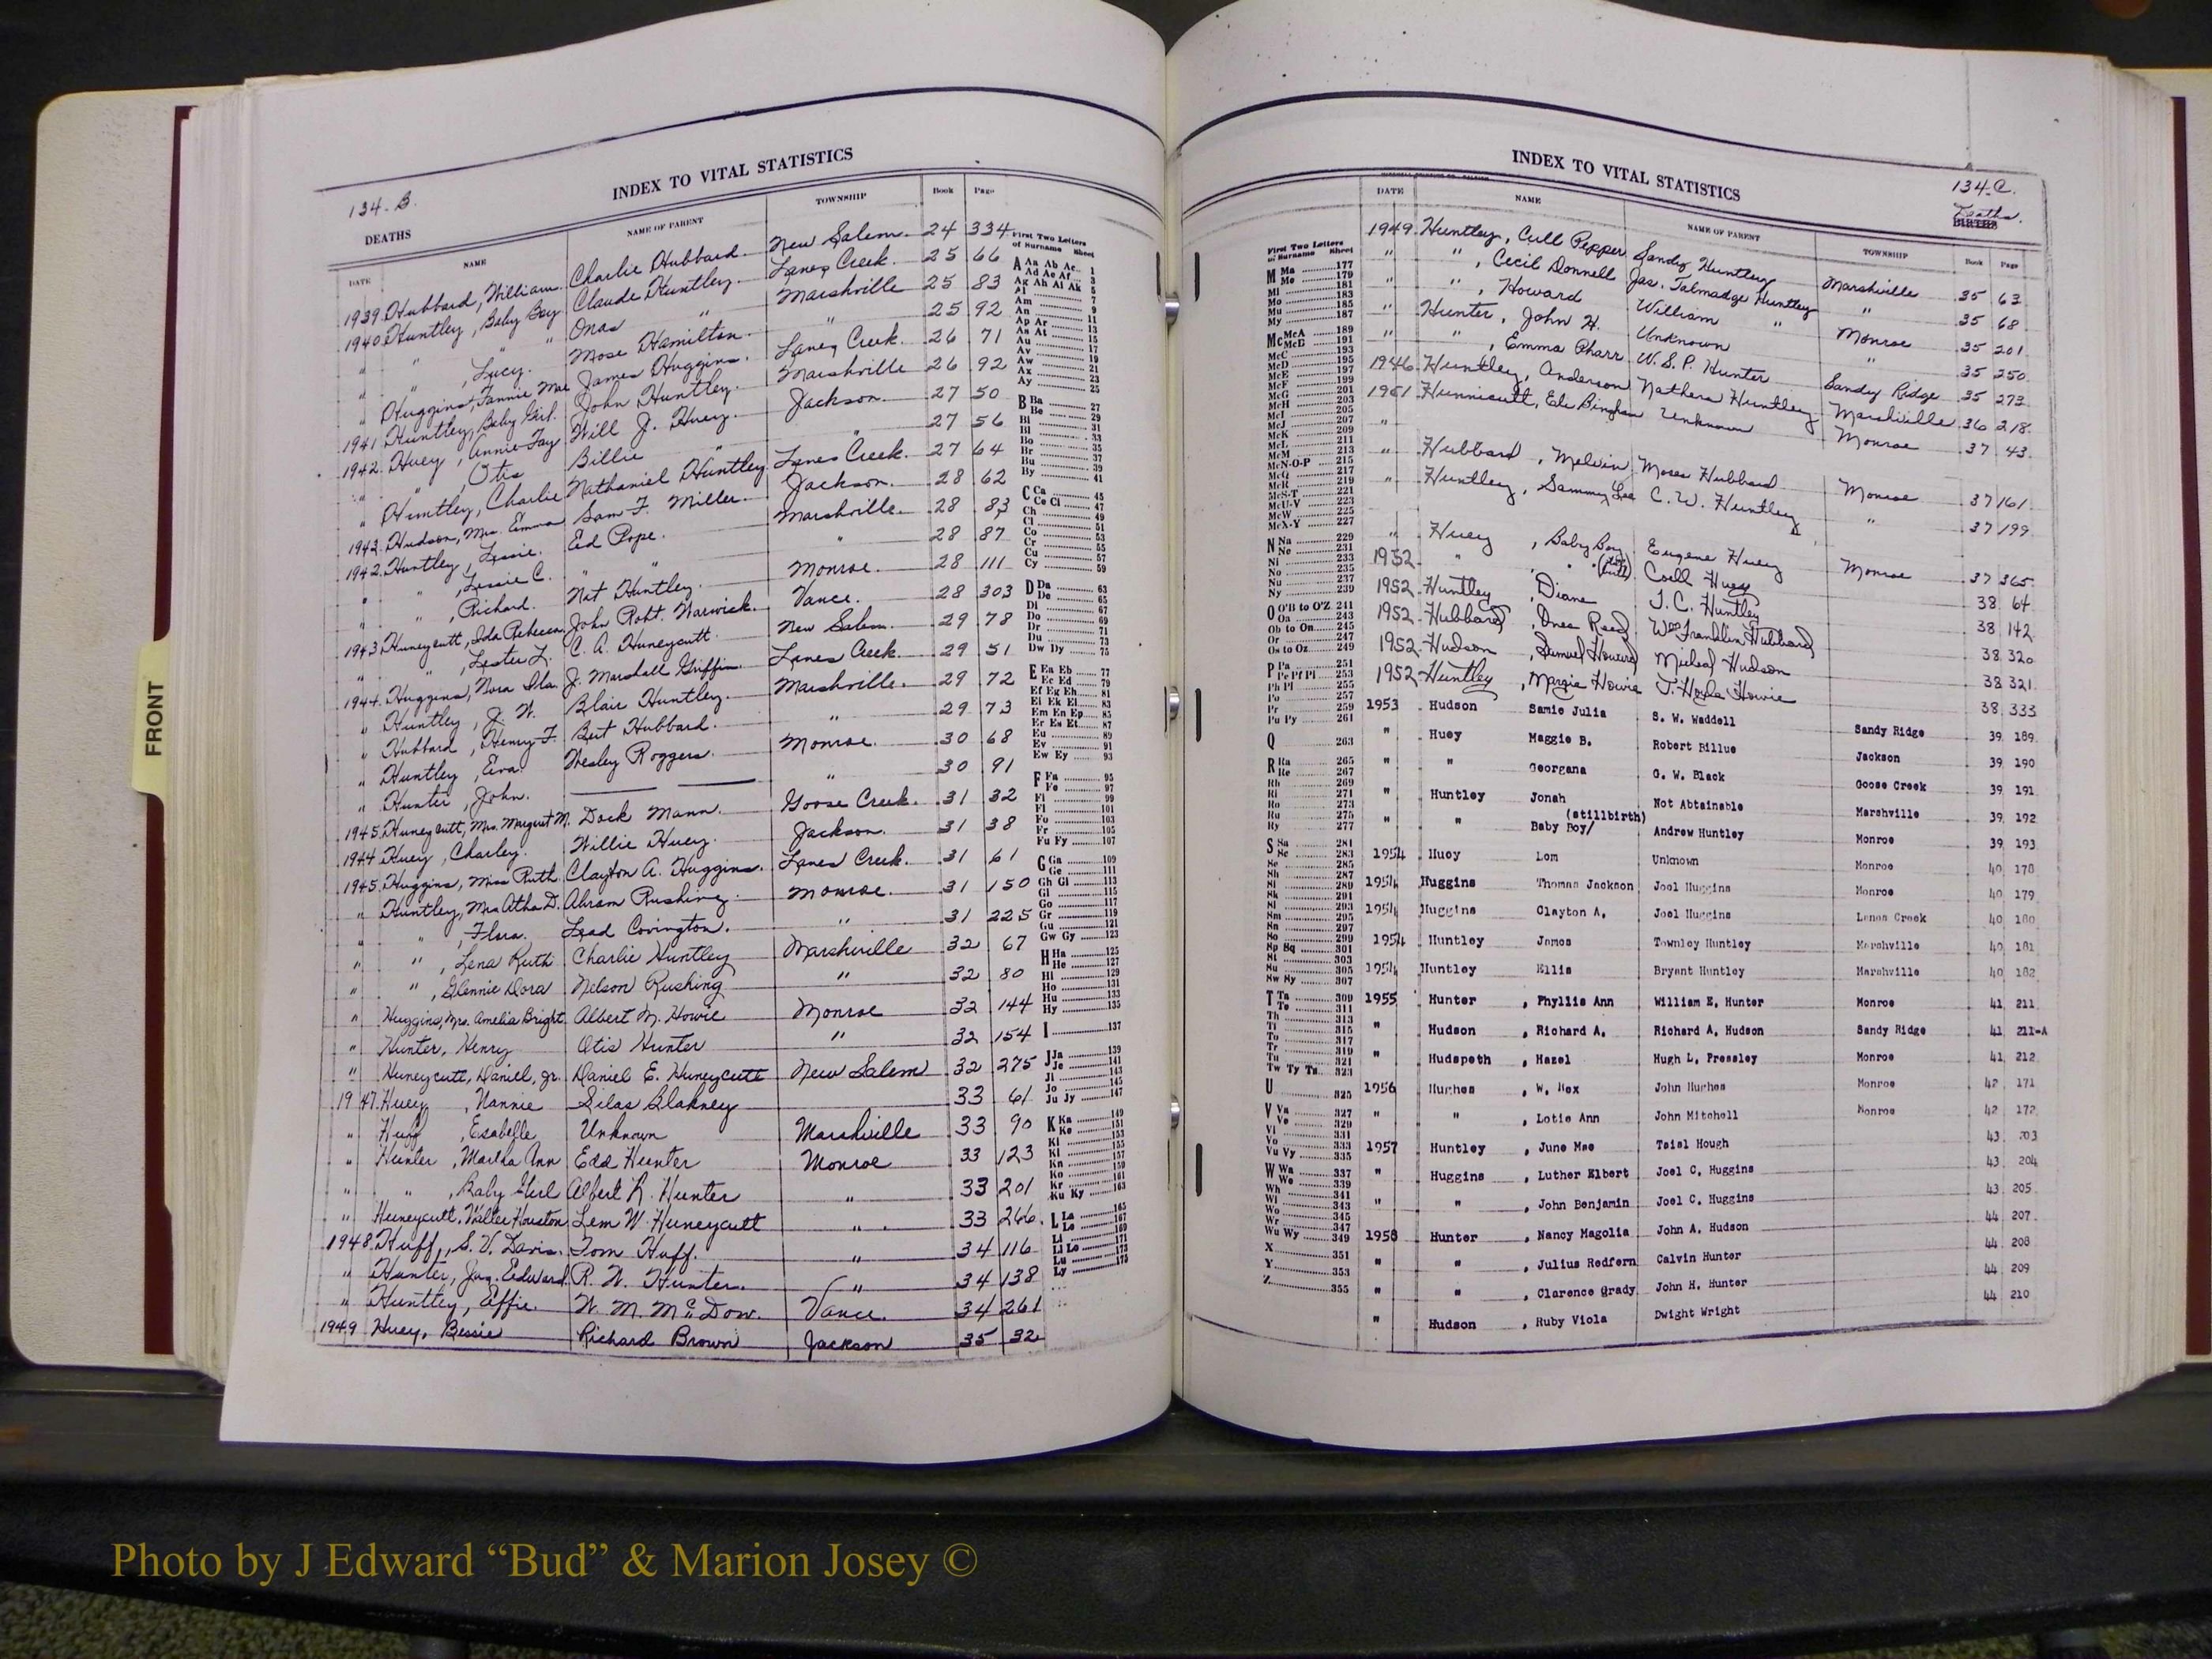 FRONT
INDEX TO VITAL STATISTICS
134-B.
DEATHS
DATE NAME NAME OF PARENT TOWNSHIP Book Page
1939 Hubbard, William. Charlie Hubbard. New Salem. 24 334
1940 Huntley, Baby Boy Claude Huntley. Lanes Creek. 25 66
" " " Onas " Marshville 25 83
" " , Lucy. Mose Hamilton. " 25 92
" Huggins, Fannie Mae James Huggins. Lanes Creek. 26 71
1941 Huntley, Baby Girl. John Huntley. Marshville 26 92
1942. Huey, Annie Fay Will J. Huey. Jackson. 27 50
" " , Otis Billie " " 27 56
" Huntley, Charlie Nathaniel Huntley Lanes Creek. 27 64
1943. Hudson, Mrs. Emma Sam F. Miller. Jackson. 28 62
1942. Huntley, Lessie. Ed Pope. Marshville. 28 83
" " , Lessie C. " " " 28 87
" " , Richard. Nat Huntley. Monroe. 28 111
1943 Huneycutt, Ida Rebecca. John Robt. Warwick. Vance. 28 303
" " , Lester L. C. A. Huneycutt. New Salem. 29 78
1944. Huggins, Nora Ida. J. Marshall Griffin Lanes Creek. 29 51
" Huntley, J. W. Blair Huntley. Marshville. 29 72
" Hubbard, Henry F. Bert Hubbard. " 29 73
" Huntley, Eva. Wesley Roggers. Monroe. 30 68
" Hunter, John. " 30 91
1945. Huneycutt, Mrs. Margaret M. Dock Mann. Goose Creek. 31 32
1944 Huey, Charley. Willie Huey. Jackson. 31 38
1945. Huggins, Miss Ruth. Clayton A. Huggins. Lanes Creek. 31 61
" Huntley, Mrs Atha D. Abram Rushing. Monroe. 31 150
" " , Flora. Lead Covington. " 31 225
" " , Lena Ruth Charlie Huntley Marshville 32 67
" " , Glennie Dora Nelson Rushing " 32 80
" Huggins, Mrs. Amelia Bright Albert M. Howie Monroe 32 144
" Hunter, Henry Otis Hunter " 32 154
" Huneycutt, Daniel, Jr. Daniel E. Huneycutt New Salem 32 275
1947. Huey, Nannie Silas Blakney 33 61
" Huff, Esabelle Unknown Marshville 33 90
" Hunter, Martha Ann Edd Hunter Monroe 33 123
" " , Baby Girl Albert R. Hunter " 33 201
" Huneycutt, Walter Houston Lem W. Huneycutt " 33 266.
1948. Huff, S. V. Davis. Tom Huff. " 34 116
" Hunter, Jas. Edward. R. W. Hunter. " 34 138
" Huntley, Effie. W. M. McDow. Vance. 34 261
1949 Huey, Bessie Richard Brown Jackson 35 32
First Two Letters
of Surname Sheet
A Aa Ab Ac 1
Ad Ae Af 3
Ag Ah Ai Ak 5
Al 7
Am 9
An 11
Ap Ar 13
As At 15
Au 17
Av 19
Aw 21
Ax 23
Ay 25
B Ba 27
Be 29
Bi 31
Bl 33
Bo 35
Br 37
Bu 39
By 41
C Ca 45
Ce Ci 47
Ch 49
Cl 51
Co 53
Cr 55
Cu 57
Cy 59
D Da 63
De 65
Di 67
Do 69
Dr 71
Du 73
Dw Dy 75
E Ea Eb 77
Ec Ed 79
Ef Eg Eh 81
Ei Ek El 83
Em En Ep 85
Er Es Et 87
Eu 89
Ev 91
Ew Ey 93
F Fa 95
Fe 97
Fi 99
Fl 101
Fo 103
Fr 105
Fu Fy 107
G Ga 109
Ge 111
Gh Gi 113
Gl 115
Go 117
Gr 119
Gu 121
Gw Gy 123
H Ha 125
He 127
Hi 129
Ho 131
Hu 133
Hy 135
I 137
J Ja 139
Je 141
Ji 143
Jo 145
Ju Jy 147
K Ka 149
Ke 151
Ki 153
Kl 155
Kn 157
Ko 159
Kr 161
Ku Ky 163
L La 165
Le 167
Li 169
Ll Lo 171
Lu 173
Ly 175
INDEX TO VITAL STATISTICS
134-C.
Deaths.
BIRTHS
DATE NAME NAME OF PARENT TOWNSHIP Book Page
1949. Huntley, Cull Pepper Sandy Huntley Marshville 35 63
" " , Cecil Donnell Jas. Talmadge Huntley " 35 68
" " , Howard William " Monroe 35 201
" Hunter, John H. Unknown " 35 250
" " , Emma Pharr W. S. P. Hunter Sandy Ridge 35 273
1946. Huntley, Anderson Nathera Huntley Marshville 36 218
1951 Hunnicutt, Ede Bingham Unknown Monroe 37 43
" Hubbard, Melvin Moses Hubbard Monroe 37 161
" Huntley, Sammy Lee C. W. Huntley " 37 199
" Huey, Baby Boy Eugene Huey Monroe 37 365
1952. " , " Coell Huey 38 64
1952 Huntley, Diane J. C. Huntley 38 142
1952. Hubbard, Reed Wm Franklin Hubbard 38 320
1952. Hudson, Samuel Howard Micheal Hudson 38 321
1952 Huntley, Margie Howie Howie 38 333
1953 Hudson Samie Julia S. W. Waddell Sandy Ridge 39 189
" Huey Maggie B. Robert Billue Jackson 39 190
" " Georgana G. W. Black Goose Creek 39 191
" Huntley Jonah Not Abtainable Marshville 39 192
" " Baby Boy/ (stillbirth) Andrew Huntley Monroe 39 193
1954 Huey Lom Unknown Monroe 40 178
1954 Huggins Thomas Jackson Joel Huggins Monroe 40 179
1954 Huggins Clayton A. Joel Huggins Lanes Creek 40 180
1954 Huntley James Townley Huntley Marshville 40 181
1954 Huntley Ellis Bryant Huntley Marshville 40 182
1955 Hunter , Phyllis Ann William E. Hunter Monroe 41 211
" Hudson , Richard A. Richard A. Hudson Sandy Ridge 41 211-A
" Hudspeth , Hazel Hugh L. Pressley Monroe 41 212
1956 Hughes , W. Hex John Hughes Monroe 42 171
" " , Lotie Ann John Mitchell Monroe 42 172
1957 Huntley , June Mae Teisl Hough 43 203
" Huggins , Luther Elbert Joel C. Huggins 43 204
" " , John Benjamin Joel C. Huggins 43 205
1958 Hunter , Nancy Magolia John A. Hudson 44 207
" " , Julius Redfern Calvin Hunter 44 208
" " , Clarence Grady John H. Hunter 44 209
" Hudson , Ruby Viola Dwight Wright 44 210
First Two Letters
of Surname Sheet
M Ma 177
Me 179
Mi 181
Mo 183
Mu 185
My 187
Mc McA 189
McB 191
McC 193
McD 195
McE 197
McF 199
McG 201
McH 203
McI 205
McJ 207
McK 209
McL 211
McM 213
McN-O-P 215
McQ 217
McR 219
McS-T 221
McU-V 223
McW 225
McX-Y 227
N Na 229
Ne 231
Ni 233
No 235
Nu 237
Ny 239
O O'B to O'Z 241
Oa 243
Ob to On 245
Or 247
Os to Oz 249
P Pa 251
Pe Pf Pi 253
Ph Pl 255
Po 257
Pr 259
Pu Py 261
Q 263
R Ra 265
Re 267
Rh 269
Ri 271
Ro 273
Ru 275
Ry 277
S Sa 281
Sc 283
Se 285
Sh 287
Si 289
Sk 291
Sl 293
Sm 295
Sn 297
So 299
Sp Sq 301
St 303
Su 305
Sw Sy 307
T Ta 309
Te 311
Th 313
Ti 315
To 317
Tr 319
Tu 321
Tw Ty Ts 323
U 325
V Va 327
Ve 329
Vi 331
Vo 333
Vu Vy 335
W Wa 337
We 339
Wh 341
Wi 343
Wo 345
Wr 347
Wu Wy 349
X 351
Y 353
Z 355
Photo by J Edward “Bud” & Marion Josey ©